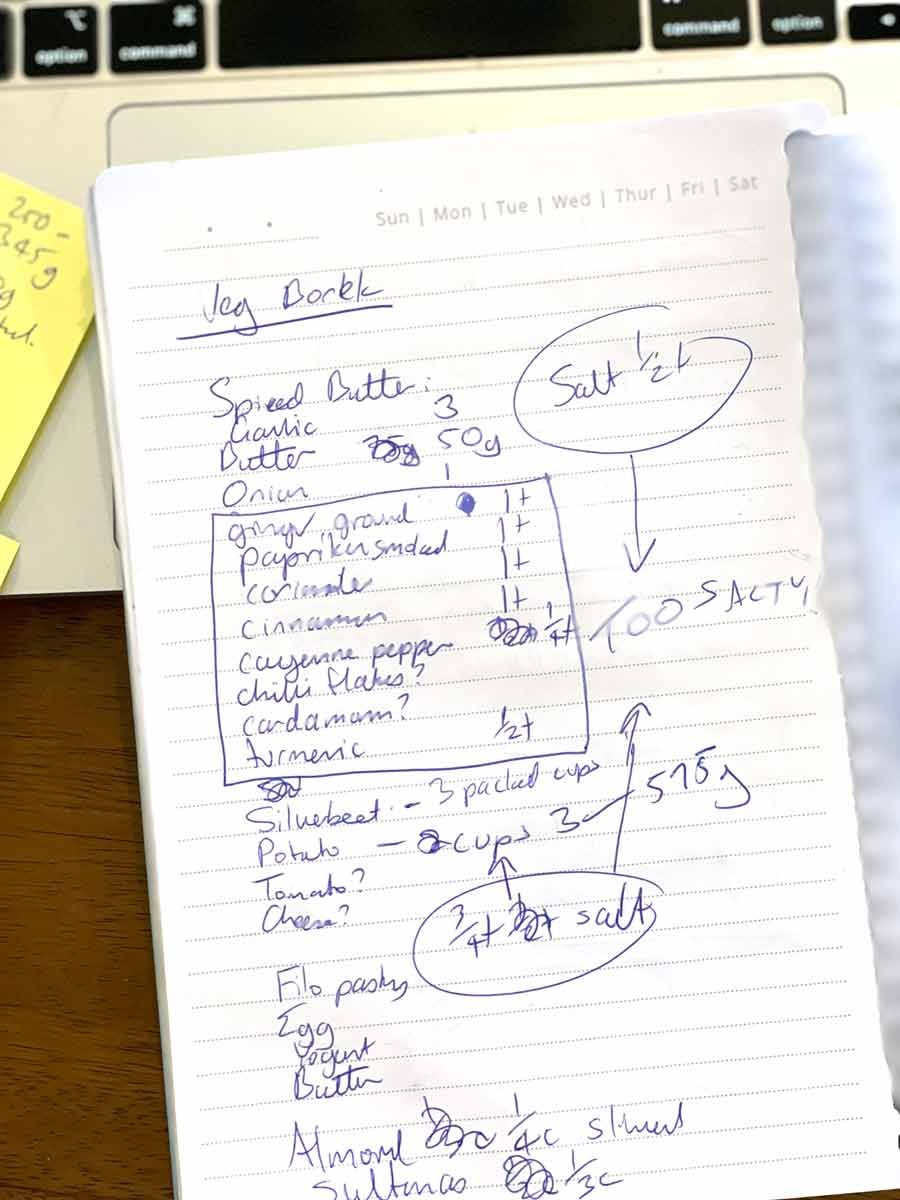 option
command
command
option
200-
345g
Sun | Mon | Tue | Wed | Thur | Fri | Sat
Veg Borek
Spiced Butter:
Salt 1/2t
Garlic 3
Butter 50g
Onion 1
ginger ground 1t
paprika smoked 1t
coriander 1t
cinnamon 1t
cayenne pepper 1/4t
TOO SALTY!
chilli flakes?
cardamam?
turmeric 1/2t
Silverbeet - 3 packed cups
Potato - cups 3 - 575g
Tomato?
Cheese?
3/4t 1/2t salt
Filo pastry
Egg
Yogurt
Butter
Almond 1/4c slivered
Sultanas 1/3c